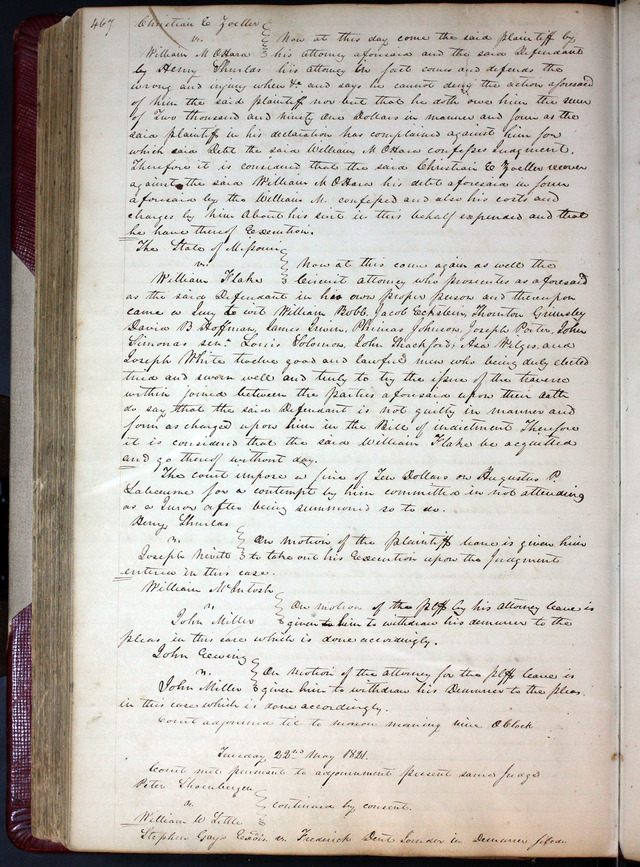 467
Christian C Zoeller
vs. Now at this day come the said plaintiff by
William M OHara his attorney aforesaid and the said Defendant
by Henry Shurlds his attorney in fact comes and defends the
wrong and injury when &c. and says he cannot deny the action aforesaid
of him the said plaintiff nor but that he doth owe him the sum
of Two thousand and ninety One Dollars in manner and form as the
said plaintiff in his declaration has complained against him for
which said Debt the said William M OHara confesses Judgment.
Therefore it is considered that the said Christian C Zoeller recover
against the said William M OHara his debt aforesaid in form
aforesaid by the William M. confessed and also his costs and
charges by him about his suit in this behalf expended and that
he have thereof Execution.
The State of Missouri
vs. Now at this come again as well the
William Flake Circuit attorney who prosecutes as aforesaid
as the said Defendant in his own proper person and thereupon
came a Jury to wit William Bobb, Jacob Eckstein, Thornton Grimsley
David B Hoffman, James Irwin, Phineas Johnson, Joseph Porter, John
Simonds senr. Louis Solomon, John Thackford, Asa Wilgus and
Joseph White twelve good and lawful men who being duly elected
tried and sworn well and truly to try the issue of the traverse
within joined between the parties aforesaid upon their oath
do say that the said Defendant is not guilty in manner and
form as charged upon him in the Bill of indictment Therefore
it is considered that the said William Flake be acquitted
and go thereof without day.
The court impose a fine of Ten Dollars on Augustus P.
for a contempt by him committed in not attending
as a Juror after being summoned so to do.
Henry Shurlds
vs. On motion of the plaintiff leave is given him
Joseph Nevitt to take out his Execution upon the Judgment
entered in this case.
William McIntosh
vs. On motion of the plff by his attorney leave is
John Miller given to him to withdraw his demurrer to the
pleas, in this case which is done accordingly.
John Ewing
vs. On motion of the attorney for the plff leave is
John Miller given him to withdraw his Demurrer to the pleas.
in this case which is done accordingly.
Court adjourned til to morrow morning nine OClock

Tuesday 22nd May 1821.
Court met pursuant to adjournment present same Judge
Peter Shoenberger
vs. continued by consent.
William W Little
Stephen Gays vs. Frederick Dent in Demurrer